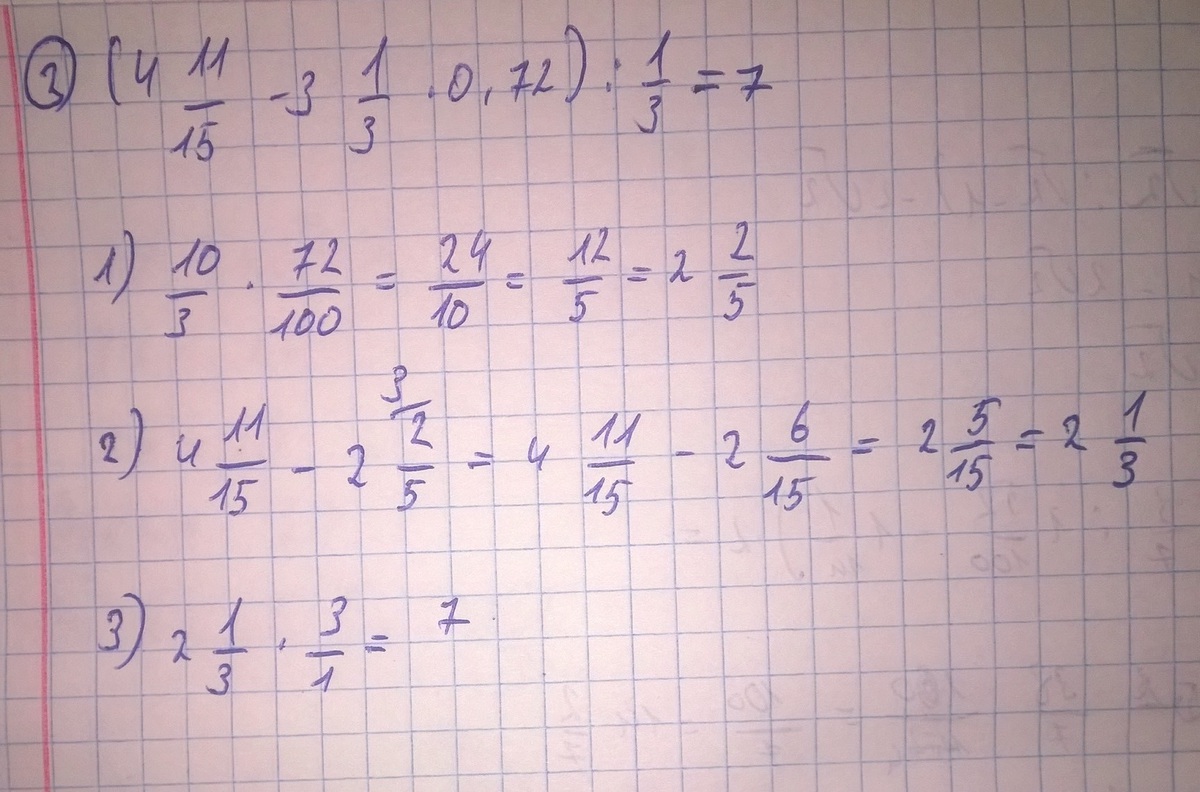 3) (4 11/15 - 3 1/3 · 0,72) : 1/3 = 7
1) 10/3 · 72/100 = 24/10 = 12/5 = 2 2/5
2) 4 11/15 - 2 2/5 3/ = 4 11/15 - 2 6/15 = 2 5/15 = 2 1/3
3) 2 1/3 · 3/1 = 7